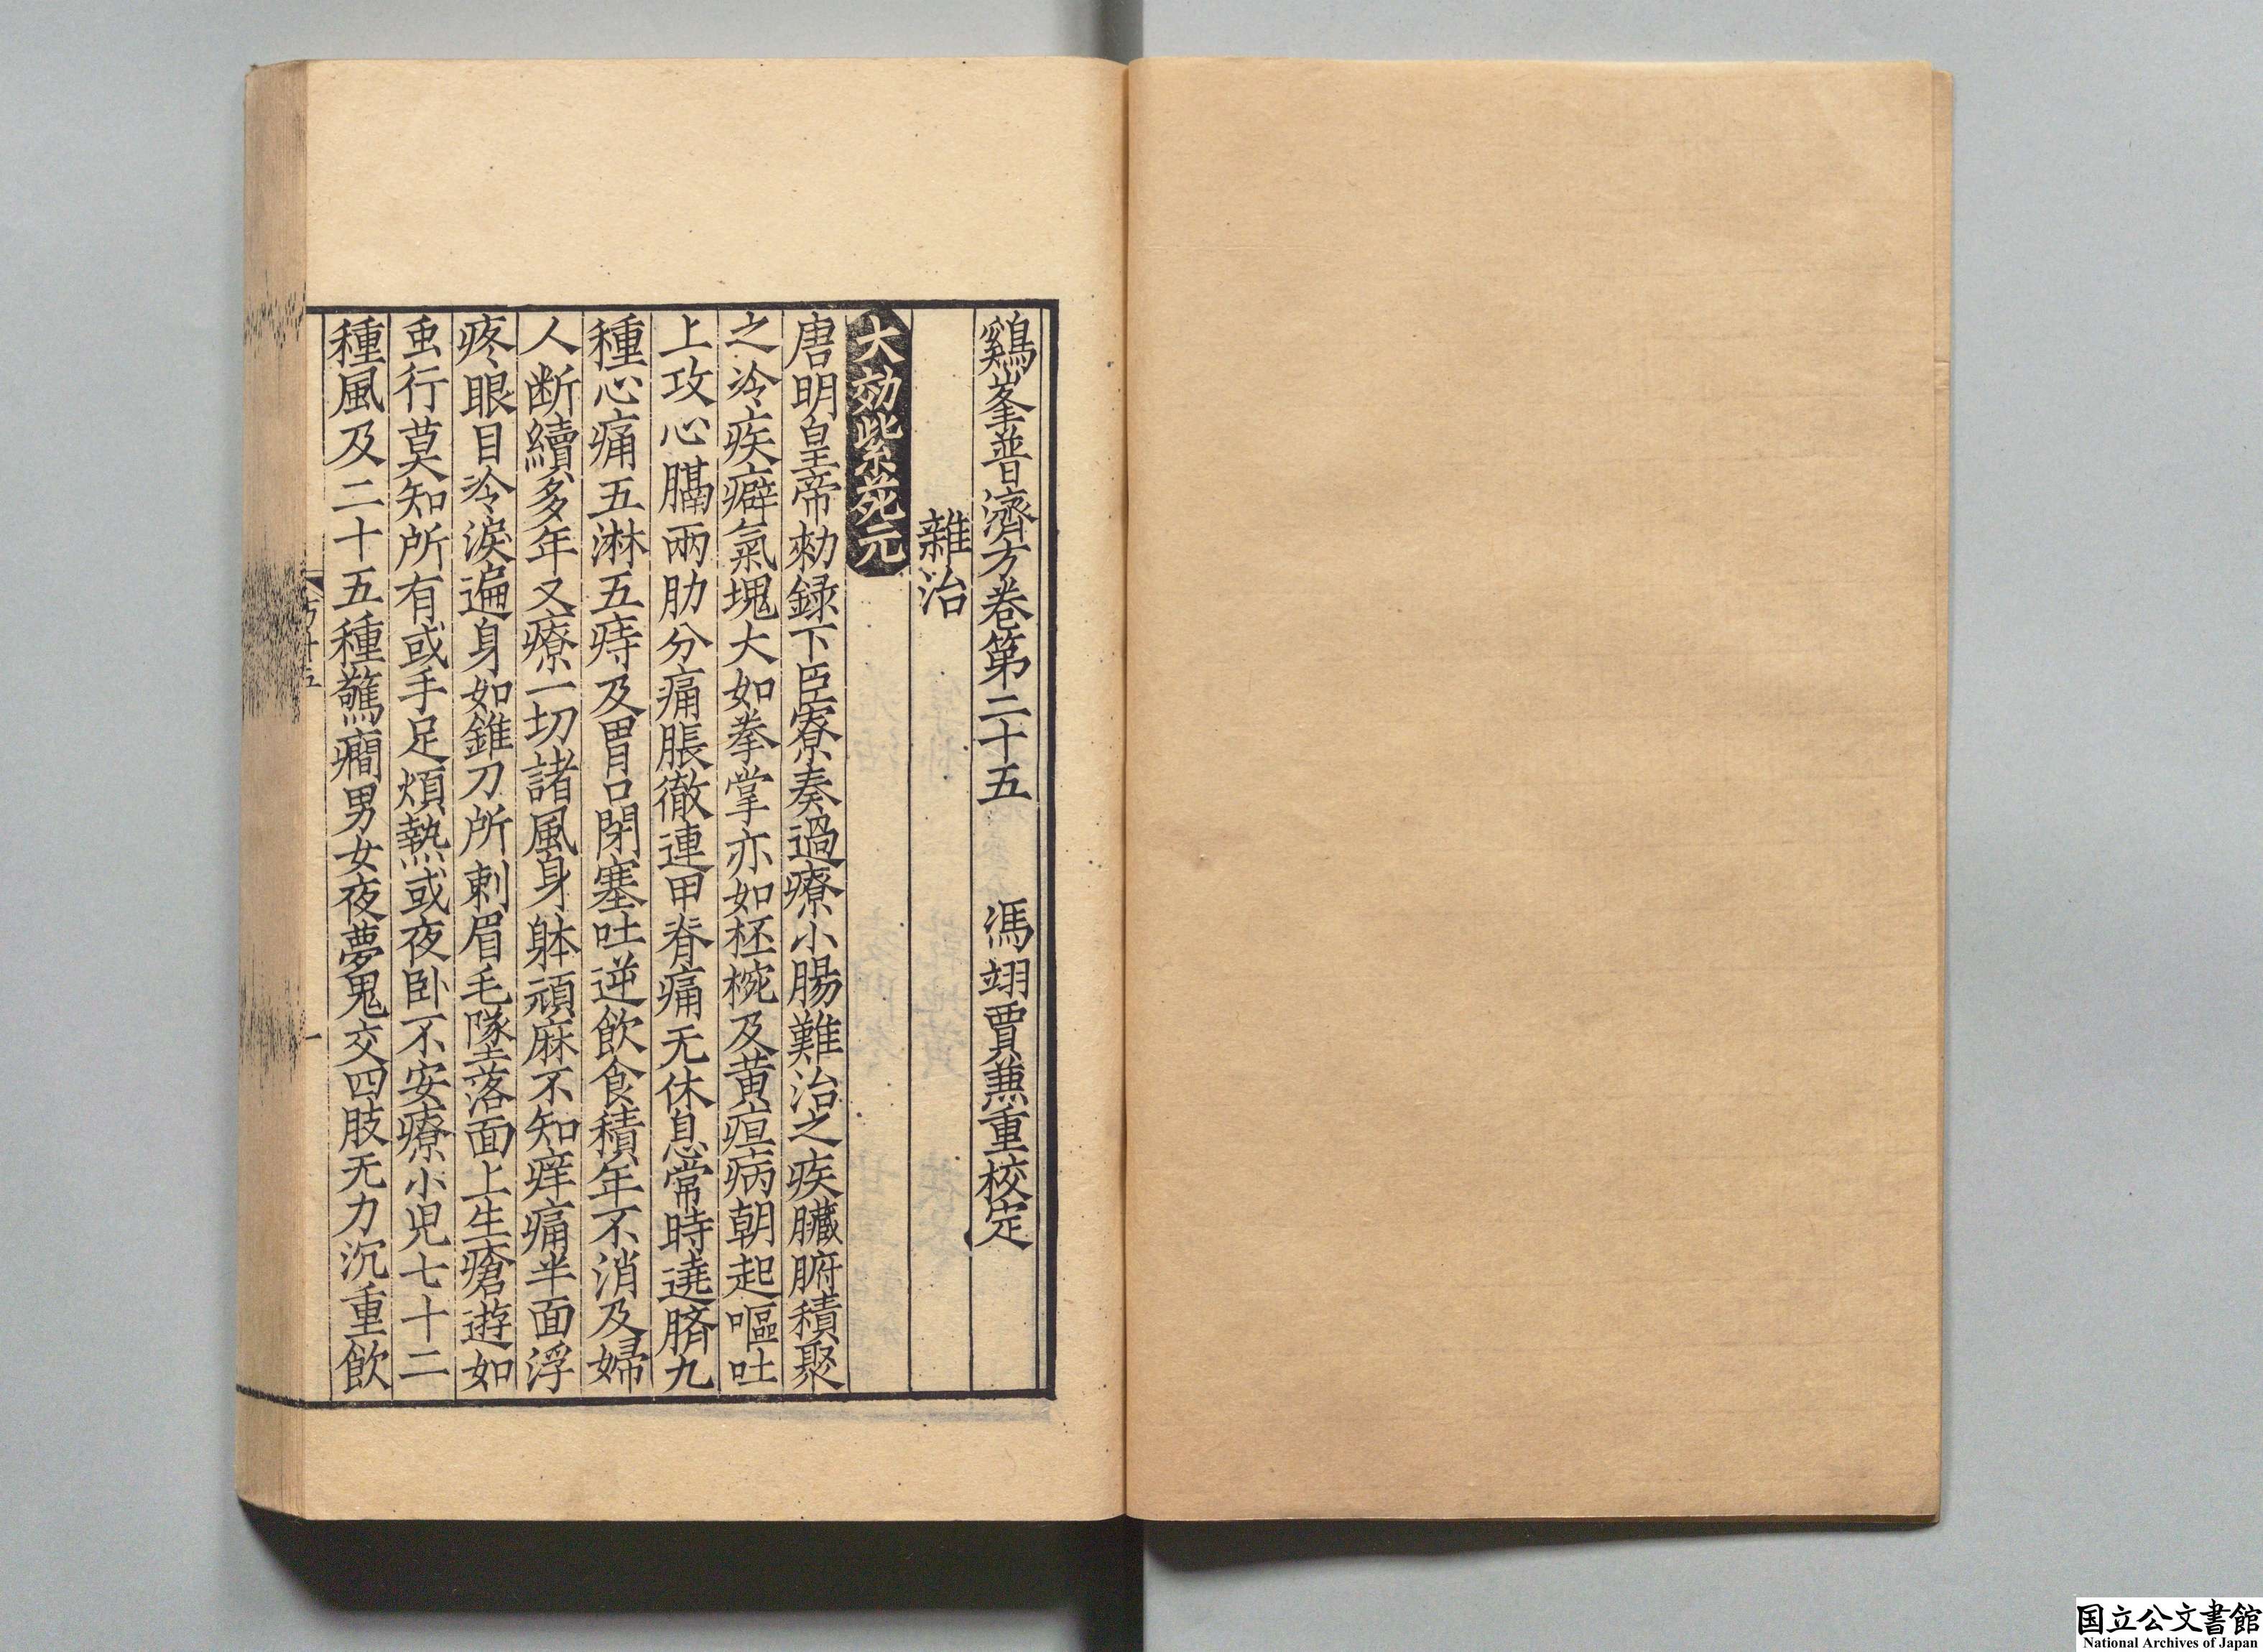 鷄峯普濟方卷第二十五　馮翊賈蒹重校定
雜治
大効紫菀元
唐明皇帝勑録下臣寮奏過療小腸難治之疾臟腑積聚
之冷疾癖氣塊大如拳掌亦如柸椀及黄疸病朝起嘔吐
上攻心膈兩肋分痛脹徹連甲脊痛无休息常時遶臍九
種心痛五淋五痔及胃口閉塞吐逆飲食積年不消及婦
人断續多年又療一切諸風身躰頑麻不知痒痛半面浮
疼眼目冷淚遍身如錐刀所刺眉毛墜落面上生瘡遊如
虫行莫知所有或手足煩熱或夜卧不安療小児七十二
種風及二十五種驚癇男女夜夢鬼交四肢无力沉重飲
方廿五
一
国立公文書館
National Archives of Japan